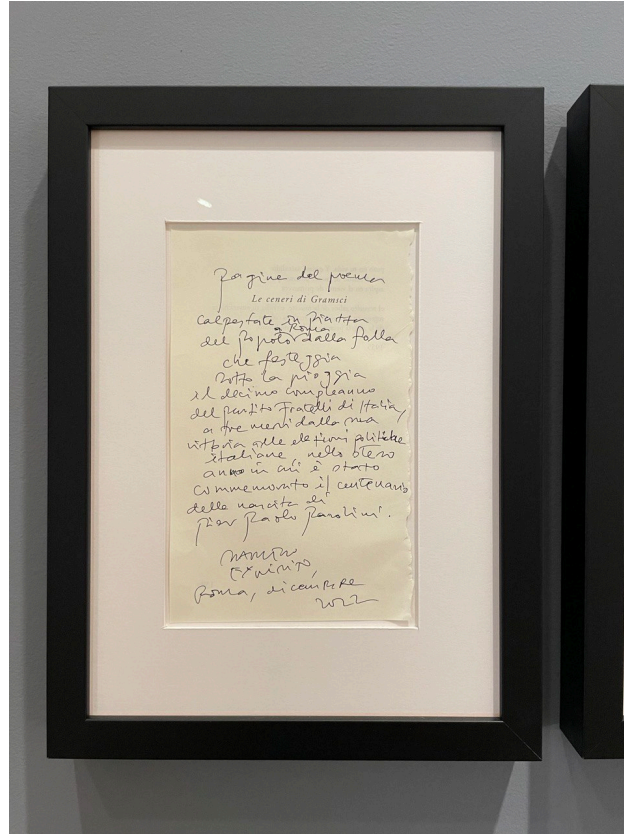 Pagine del poema
Le ceneri di Gramsci
calpestate in Piazza
del Popolo a Roma dalla folla
che festeggia
sotto la pioggia
il decimo compleanno
del partito Fratelli di Italia,
a tre mesi dalla sua
vittoria alle elezioni politiche
italiane, nello stesso
anno in cui è stato
commemorato il centenario
della nascita di
Pier Paolo Pasolini.
Roma, dicembre
2022